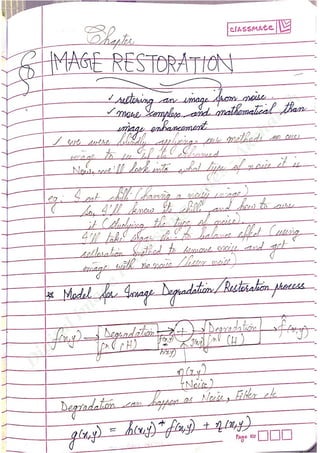 classmate
Chapter
8 IMAGE RESTORATION
✓ restoring an image from noise
✓ more complex and mathematical than
image enhancement
✓ we were blindly applying our methods on our
image to see if it enhanced
Now, we'll look into what type of noise it is
eg: I got chill (having a noisy image)
So, I'll know its chill and how to cure
it (studying the type of noise).
I'll take to balance effect (using
restoration method to remove noise and get
image with no noise / lesser noise)
* Model for Image Degradation / Restoration process
f(x,y) → Degradation → + → Degradation → f̂(x,y)
fn (H) g(x,y) fn (H)
η(x,y)
(Noise)
Degradation can happen as Noise, Filter etc
g(x,y) = h(x,y) * f(x,y) + η(x,y)
Page no